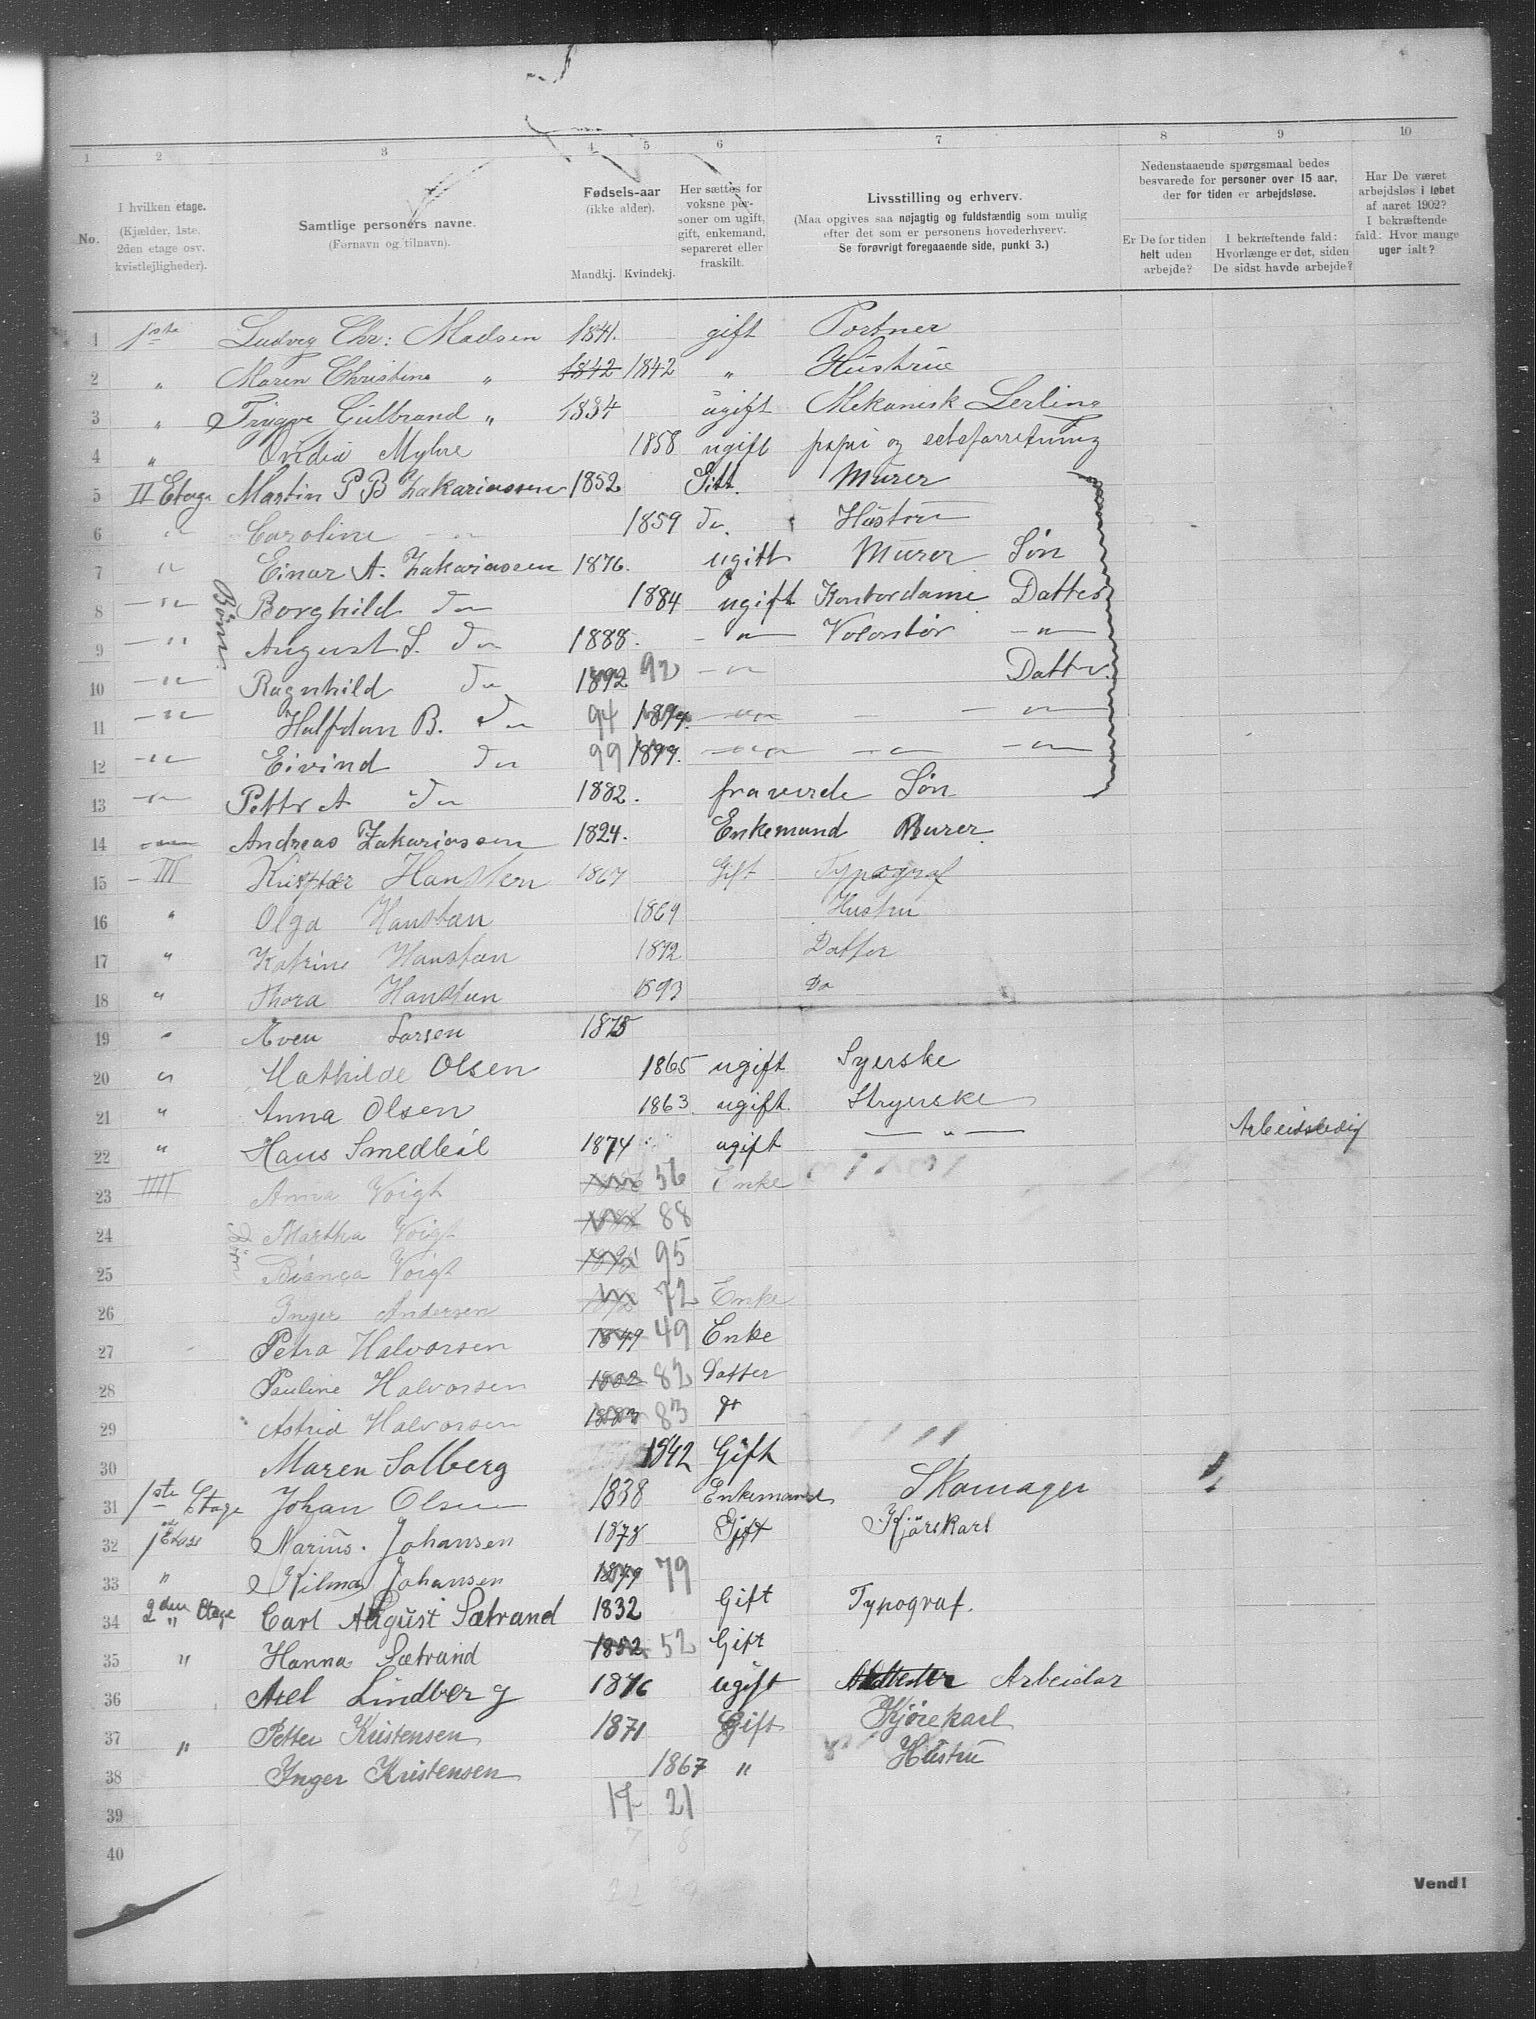 1 2 3 4 5 6 7 8 9 10
No.
I hvilken etage.
(Kjælder, 1ste, 2den etage osv. kvistlejligheder).
Samtlige personers navne.
(Fornavn og tilnavn).
Fødsels-aar
(ikke alder).
Mandkj. Kvindekj.
Her sættes for voksne personer om ugift, gift, enkemand, separeret eller fraskilt.
Livsstilling og erhverv.
(Maa opgives saa nøjagtig og fuldstændig som mulig efter det som er personens hovederhverv.
Se forøvrigt foregaaende side, punkt 3.)
Nedenstaaende spørgsmaal bedes besvarede for personer over 15 aar, der for tiden er arbejdsløse.
Er De for tiden helt uden arbejde?
I bekræftende fald: Hvorlænge er det, siden De sidst havde arbejde?
Har De været arbejdsløs i løbet af aaret 1902? I bekræftende fald: Hvor mange uger ialt?
1 1ste Ludvig Chr: Madsen 1841. gift Portner
2 „ Maren Christine „ 1842 1842 „ Hustrue
3 „ Trygve Gulbrand „ 1884 ugift Mekanisk Lerling
4 „ Ovidia Myhre 1858 ugift papir og
5 II Etage Martin P B Zakariassen 1852 Gift. Murer
6 " Caroline — " — 1859 Do. Hustru
7 " Einar A. Zakariassen 1876. ugift Murer Søn
Børn
8 — " — Borghild Do 1884 ugift Kontordame Datter
9 — " August S. Do 1888. — " — Volontør — " —
10 — " — Ragnhild Do 1892 92 — " — Datter.
11 — " — Halfdan B. Do 94 1894. — " — — — " —
12 — " — Eivind Do 99 1899. — " — — " — — " —
13 — " — Petter A Do 1882. fraverde Søn
14 — " — Andreas Zakariassen 1824. Enkemand Murer.
15 — III Kristfær Hansteen 1867 Gift Typograf
16 " Olga Hansteen 1869 Hustru
17 " Katrine Hansteen 1892 Datter
18 " Thora Hansteen 1893 Do
19 " Even Larsen 1875
20 " Mathilde Olsen 1865 ugift Syerske
21 " Anna Olsen 1863 ugift. Strygerske
22 " Hans 1874 ugift — " — Arbeidsledig
23 IIII Anna Voigt 56 Enke
24 Børn Martha Voigt 88
25 Bianca Voigt 95
26 Inger Andersen 1872 72 Enke
27 Petra Halvorsen 1849 49 Enke
28 Pauline Halvorsen 1882 82 Datter
29 Astrid Halvorsen 1883 83 Do
30 Maren Solberg 1842 Gift
31 1ste Etage Johan Olsen 1838 Enkemand Skomager
32 Marius. Johansen 1878 Gift Kjørekarl
33 " Hilma Johansen 1879 79
34 2den Etage " Carl August Sætrand 1832 Gift Typograf.
35 " Hanna Sætrand 1852 52 Gift
36 Axel Lindberg 1876 ugift Arbeider
37 " Petter Kristensen 1871 Gift Kjørekarl
38 Inger Kristensen 1867 " Hustru
39 17 21
40 7 8
Vend!